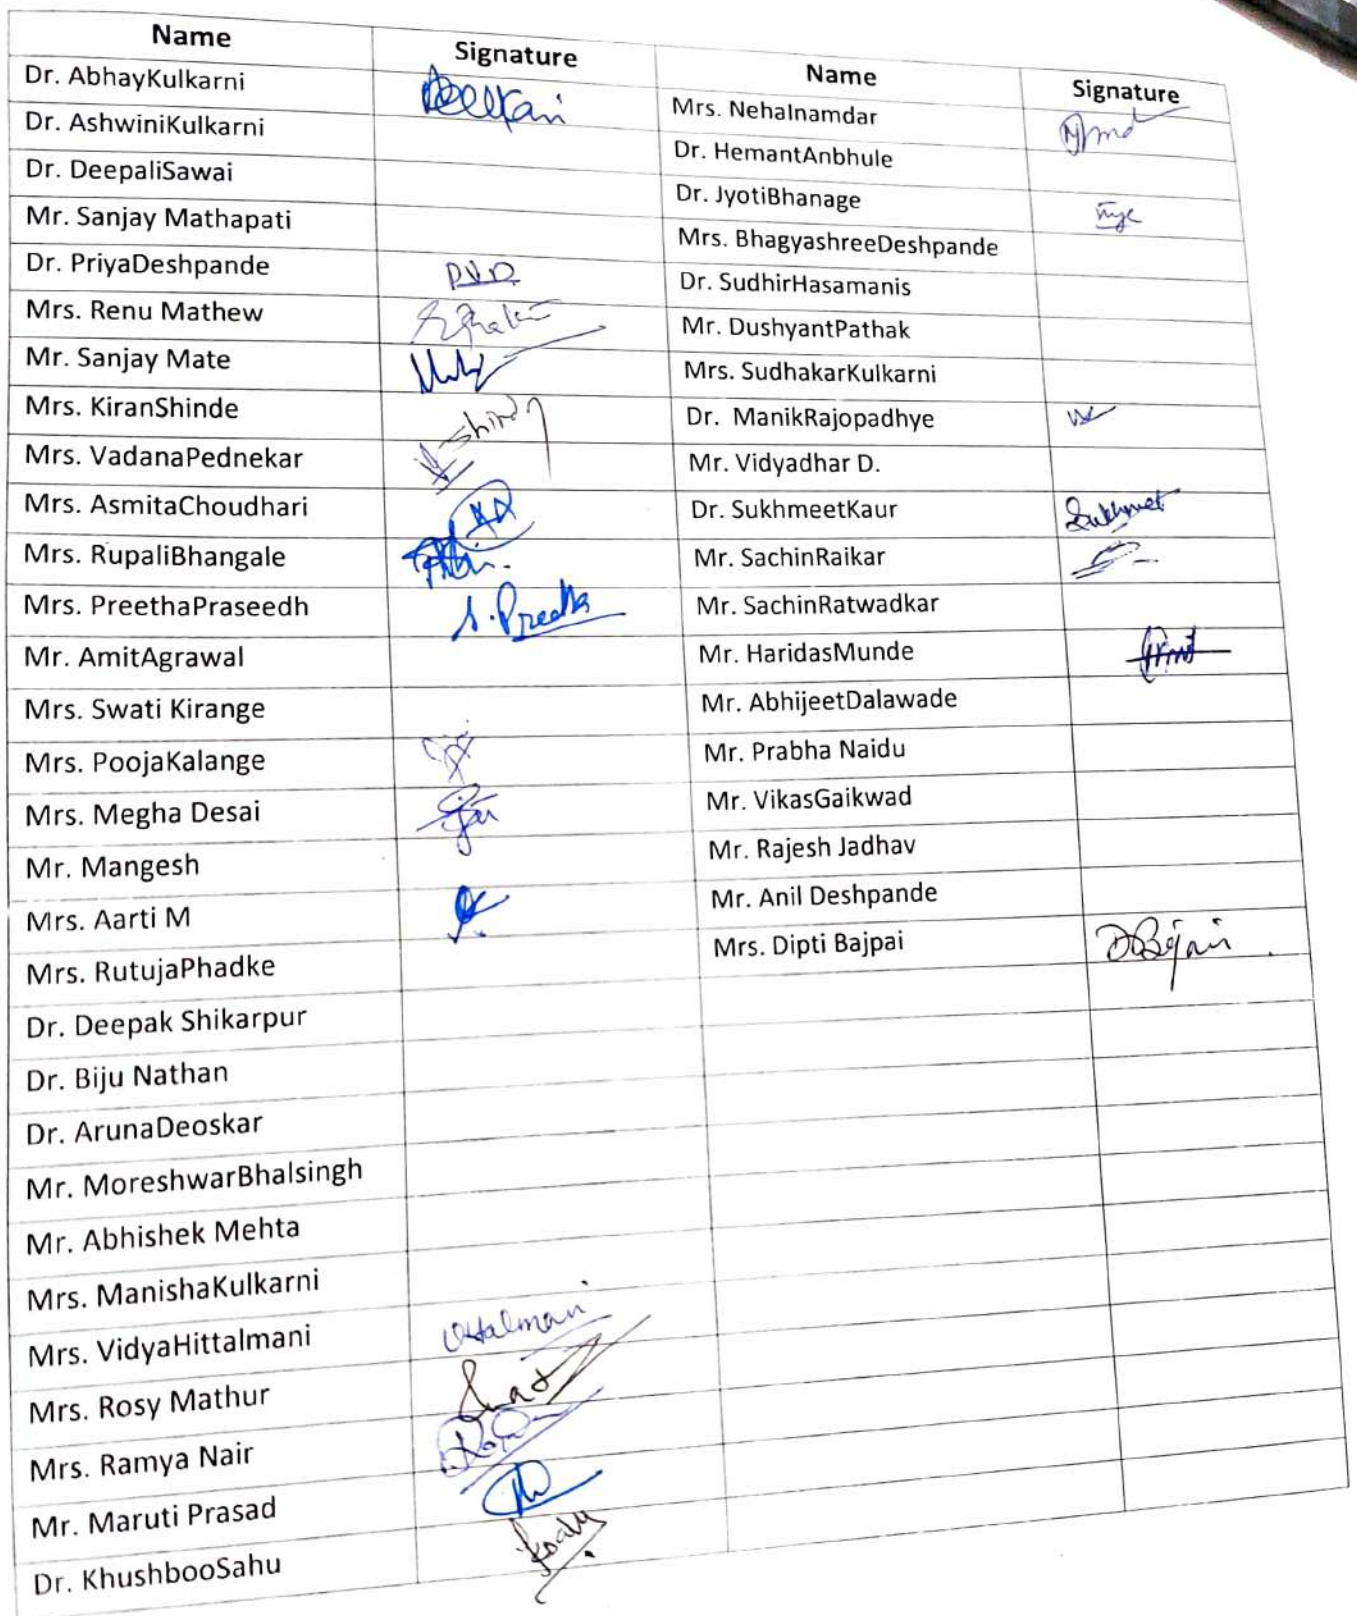 Name Signature Name Signature
Dr. AbhayKulkarni Mrs. NehaInamdar
Dr. AshwiniKulkarni Dr. HemantAnbhule
Dr. DeepaliSawai Dr. JyotiBhanage
Mr. Sanjay Mathapati Mrs. BhagyashreeDeshpande
Dr. PriyaDeshpande P.V.D. Dr. SudhirHasamanis
Mrs. Renu Mathew Mr. DushyantPathak
Mr. Sanjay Mate Mrs. SudhakarKulkarni
Mrs. KiranShinde Shinde Dr. ManikRajopadhye
Mrs. VadanaPednekar Mr. Vidyadhar D.
Mrs. AsmitaChoudhari Dr. SukhmeetKaur Sukhmeet
Mrs. RupaliBhangale Mr. SachinRaikar
Mrs. PreethaPraseedh S. Preetha Mr. SachinRatwadkar
Mr. AmitAgrawal Mr. HaridasMunde
Mrs. Swati Kirange Mr. AbhijeetDalawade
Mrs. PoojaKalange Mr. Prabha Naidu
Mrs. Megha Desai Mr. VikasGaikwad
Mr. Mangesh Mr. Rajesh Jadhav
Mrs. Aarti M Mr. Anil Deshpande
Mrs. RutujaPhadke Mrs. Dipti Bajpai DBajpai
Dr. Deepak Shikarpur
Dr. Biju Nathan
Dr. ArunaDeoskar
Mr. MoreshwarBhalsingh
Mr. Abhishek Mehta
Mrs. ManishaKulkarni
Mrs. VidyaHittalmani
Mrs. Rosy Mathur
Mrs. Ramya Nair
Mr. Maruti Prasad
Dr. KhushbooSahu